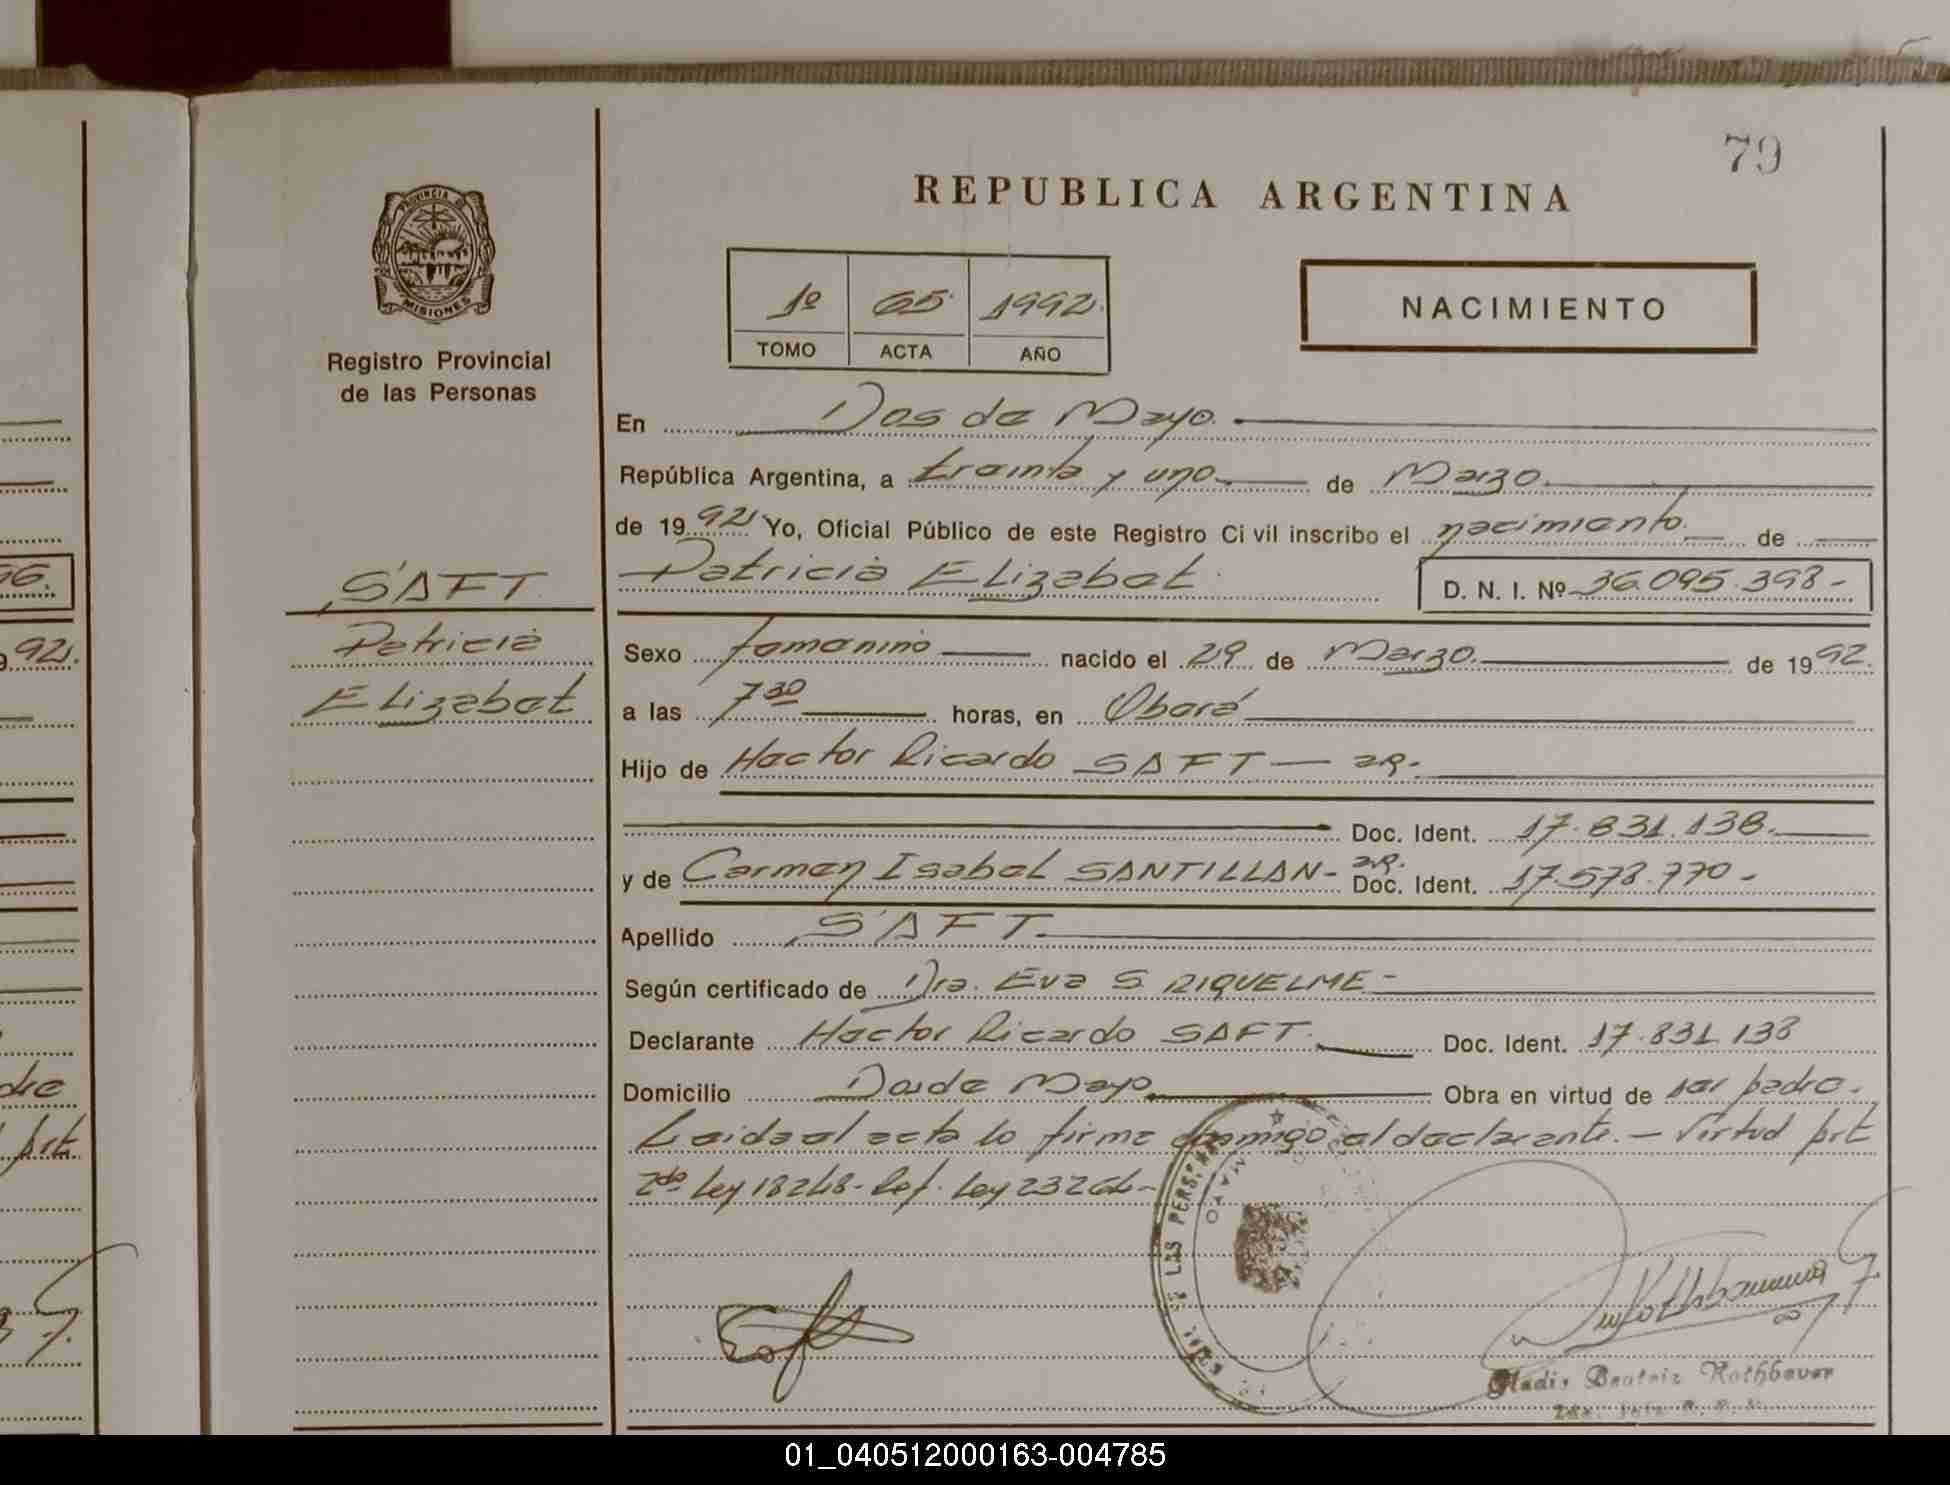 79
REPUBLICA ARGENTINA
PROVINCIA DE
MISIONES
Registro Provincial
de las Personas
1º 65 1992
TOMO ACTA AÑO
NACIMIENTO
En Dos de Mayo.
República Argentina, a treinta y uno de Marzo
de 1992 Yo, Oficial Público de este Registro Civil inscribo el nacimiento. de
Patricia Elizabet D. N. I. Nº 36.095.398-
SAFT
Patricia
Elizabet
Sexo femenino nacido el 29 de Marzo de 1992.
a las 7 30 horas, en Oberá
Hijo de Hector Ricardo SAFT - ar.
Doc. Ident. 17.831.138.
y de Carmen Isabel SANTILLAN- ar. Doc. Ident. 17.578.770-
Apellido SAFT.
Según certificado de Dra. Eva S. RIQUELME-
Declarante Hector Ricardo SAFT. Doc. Ident. 17.831.138
Domicilio Dos de Mayo Obra en virtud de ser padre.
Leida el acta lo firma conmigo el declarante.- Virtud Art
2do Ley 18248- Ref. Ley 23264-
DE LAS PERSONAS
MAYO
Gladis Beatriz Rothbauer
56.
992.
dre
Art.
01_040512000163-004785